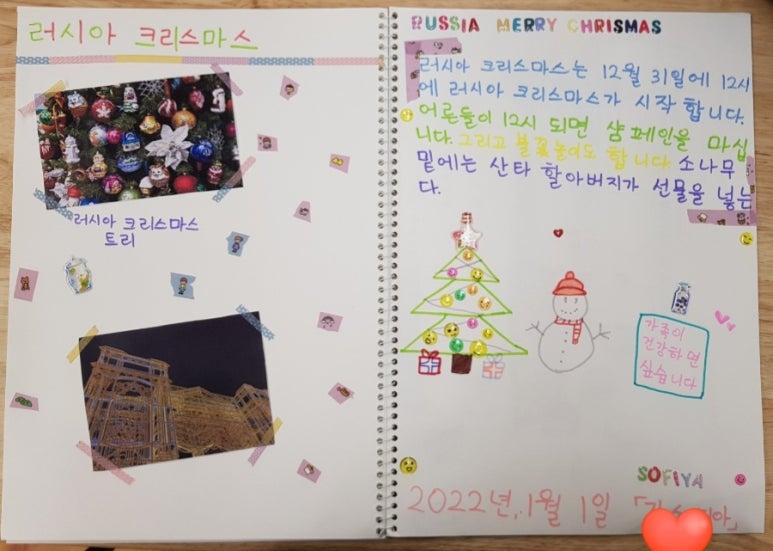 러시아 크리스마스
러시아 크리스마스
트리
RUSSIA MERRY CHRISMAS
러시아 크리스마스는 12월 31일에 12시
에 러시아 크리스마스가 시작 합니다.
어른들이 12시 되면 샴페인을 마십
니다. 그리고 불꽃놀이도 합니다 소나무
밑에는 산타 할아버지가 선물을 넣는
다.
가족이
건강하면
싶습니다
SOFIYA
2022년, 1월 1일